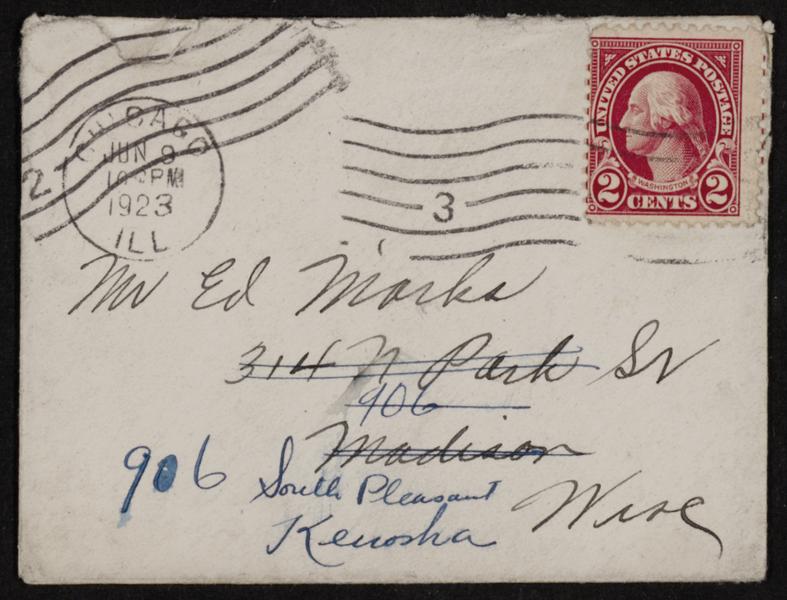 CHICAGO
JUN 9
PM
1923
ILL
2
3
UNITED STATES POSTAGE
WASHINGTON
2 CENTS 2
Mr Ed Marks
314 N Park St
906
Madison
906 South Pleasant
Kenosha Wisc